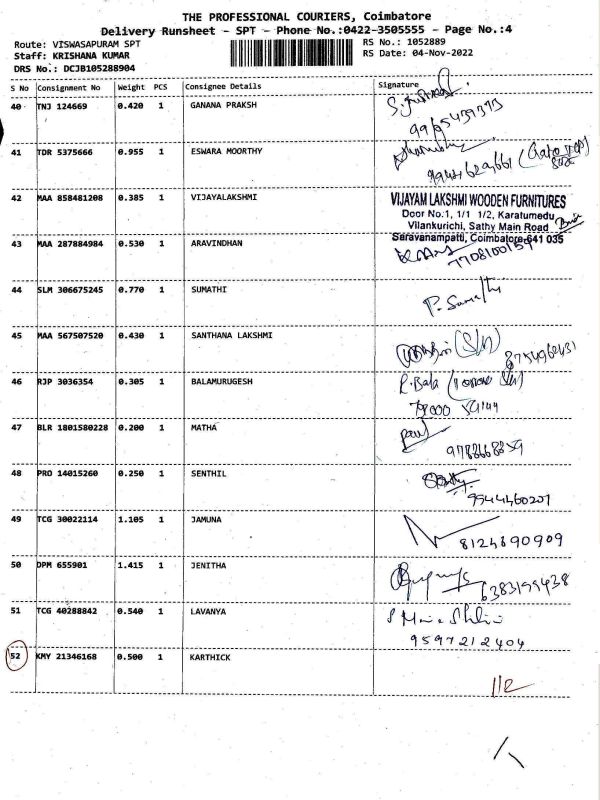 THE PROFESSIONAL COURIERS, Coimbatore
Delivery Runsheet - SPT - Phone No.:0422-3505555 - Page No.:4
Route: VISWASAPURAM SPT RS No.: 1052889
Staff: KRISHANA KUMAR RS Date: 04-Nov-2022
DRS No.: DCJB105288904
S No Consignment No Weight PCS Consignee Details Signature
40 TNJ 124669 0.420 1 GANANA PRAKSH
41 TDR 5375666 0.955 1 ESWARA MOORTHY
42 MAA 858481208 0.385 1 VIJAYALAKSHMI VIJAYAM LAKSHMI WOODEN FURNITURES
Door No:1, 1/1 1/2, Karatumedu
Vilankurichi, Sathy Main Road
Saravanampatti, Coimbatore-641 035
43 MAA 287884984 0.530 1 ARAVINDHAN
44 SLM 306675245 0.770 1 SUMATHI
P. Sumathi
45 MAA 567507520 0.430 1 SANTHANA LAKSHMI
(S/N) 8754962431
46 RJP 3036354 0.305 1 BALAMURUGESH
P. Bala
47 BLR 1801580228 0.200 1 MATHA
48 PRO 14015260 0.250 1 SENTHIL
9944460207
49 TCG 30022114 1.105 1 JAMUNA
8124890909
50 DPM 655901 1.415 1 JENITHA
6383199438
51 TCG 40288842 0.540 1 LAVANYA
9597212404
52 KMY 21346168 0.500 1 KARTHICK